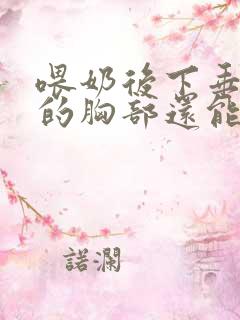 喂奶後下垂
的胸部還能
諾瀾